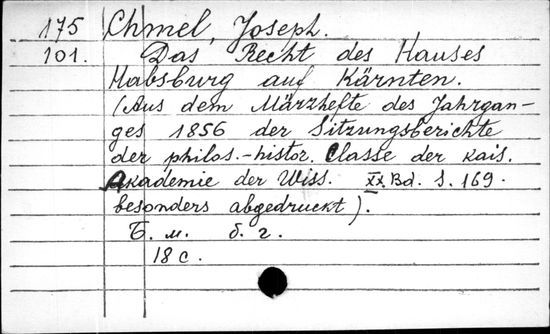 175 Chmel, Joseph.
101. Das Recht des Hauses
Habsburg auf Kärnten.
(Aus dem Märzhefte des Jahrgan-
ges 1856 der Sitzungsberichte
der philos.-histor. Classe der kais.
Akademie der Wiss. XX. Bd. S. 169.
besonders abgedruckt).
Б. м. б. г.
18 с.